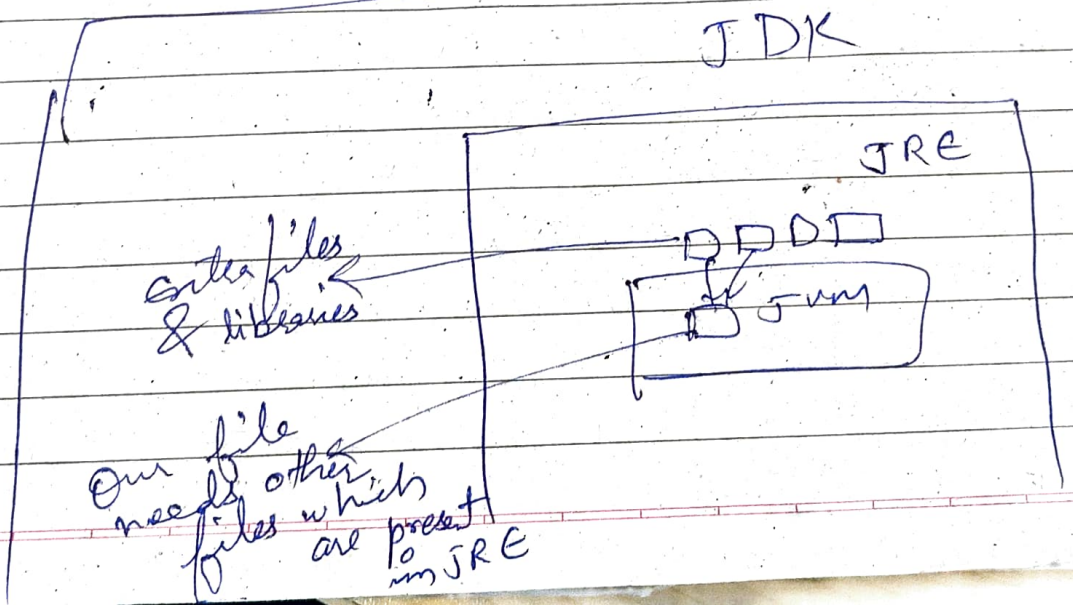 JDK
JRE
extra files
& libraries
JVM
Our file
needs other
files which
are present
in JRE